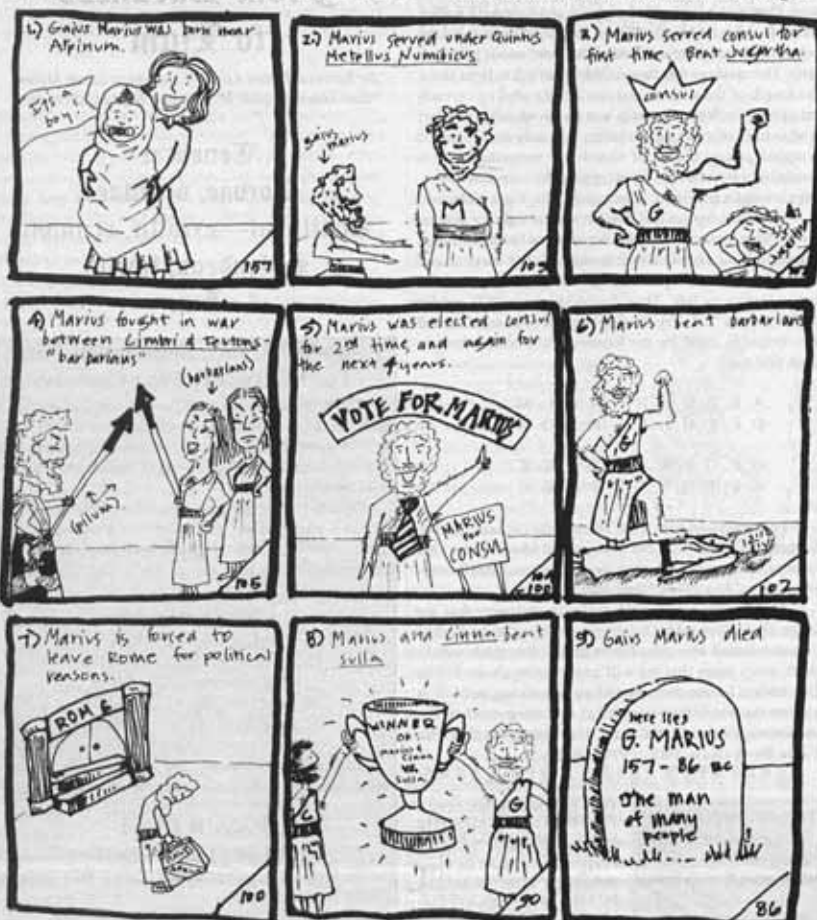 1.) Gaius Marius was born near
Arpinum.
It's a
boy.
157
2.) Marius served under Quintus
Metellus Numidicus
Gaius
Marius
M
109
3.) Marius served consul for
first time. Beat Jugurtha
consul
G
Jugurtha
4) Marius fought in war
between Cimbri & Teutons-
"barbarians"
(barbarians)
(pilum)
105
5) Marius was elected consul
for 2nd time, and again for
the next 4 years.
VOTE FOR MARIUS
MARIUS
FOR
CONSUL
104
100
6.) Marius beat barbarians
G
102
7) Marius is forced to
leave Rome for political
reasons.
ROME
100
8) Marius and Cinna beat
Sulla
WINNER
OF:
Marius &
Cinna
vs.
Sulla
C
G
90
9) Gaius Marius died
here lies
G. MARIUS
157 - 86 BC
The man
of many
people
86